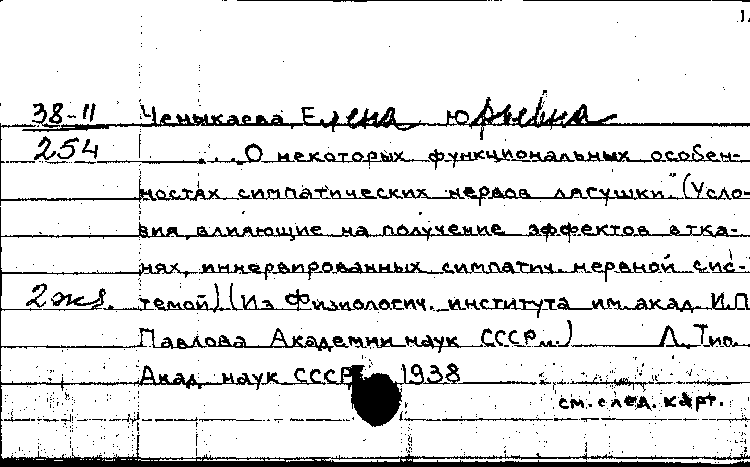 38-11 Ченыкаева, Елена Юрьевна
254 ...О некоторых функциональных особен-
ностях симпатических нервов лягушки." (Усло-
вия, влияющие на получение эффектов в тка-
нях, иннервированных симпатич. нервной сис-
2 экз. темой) (Из Физиологич. института им. акад. И.П.
Павлова Академии наук СССР...) Л. Тип.
Акад. наук СССР 1938
см. след. карт.